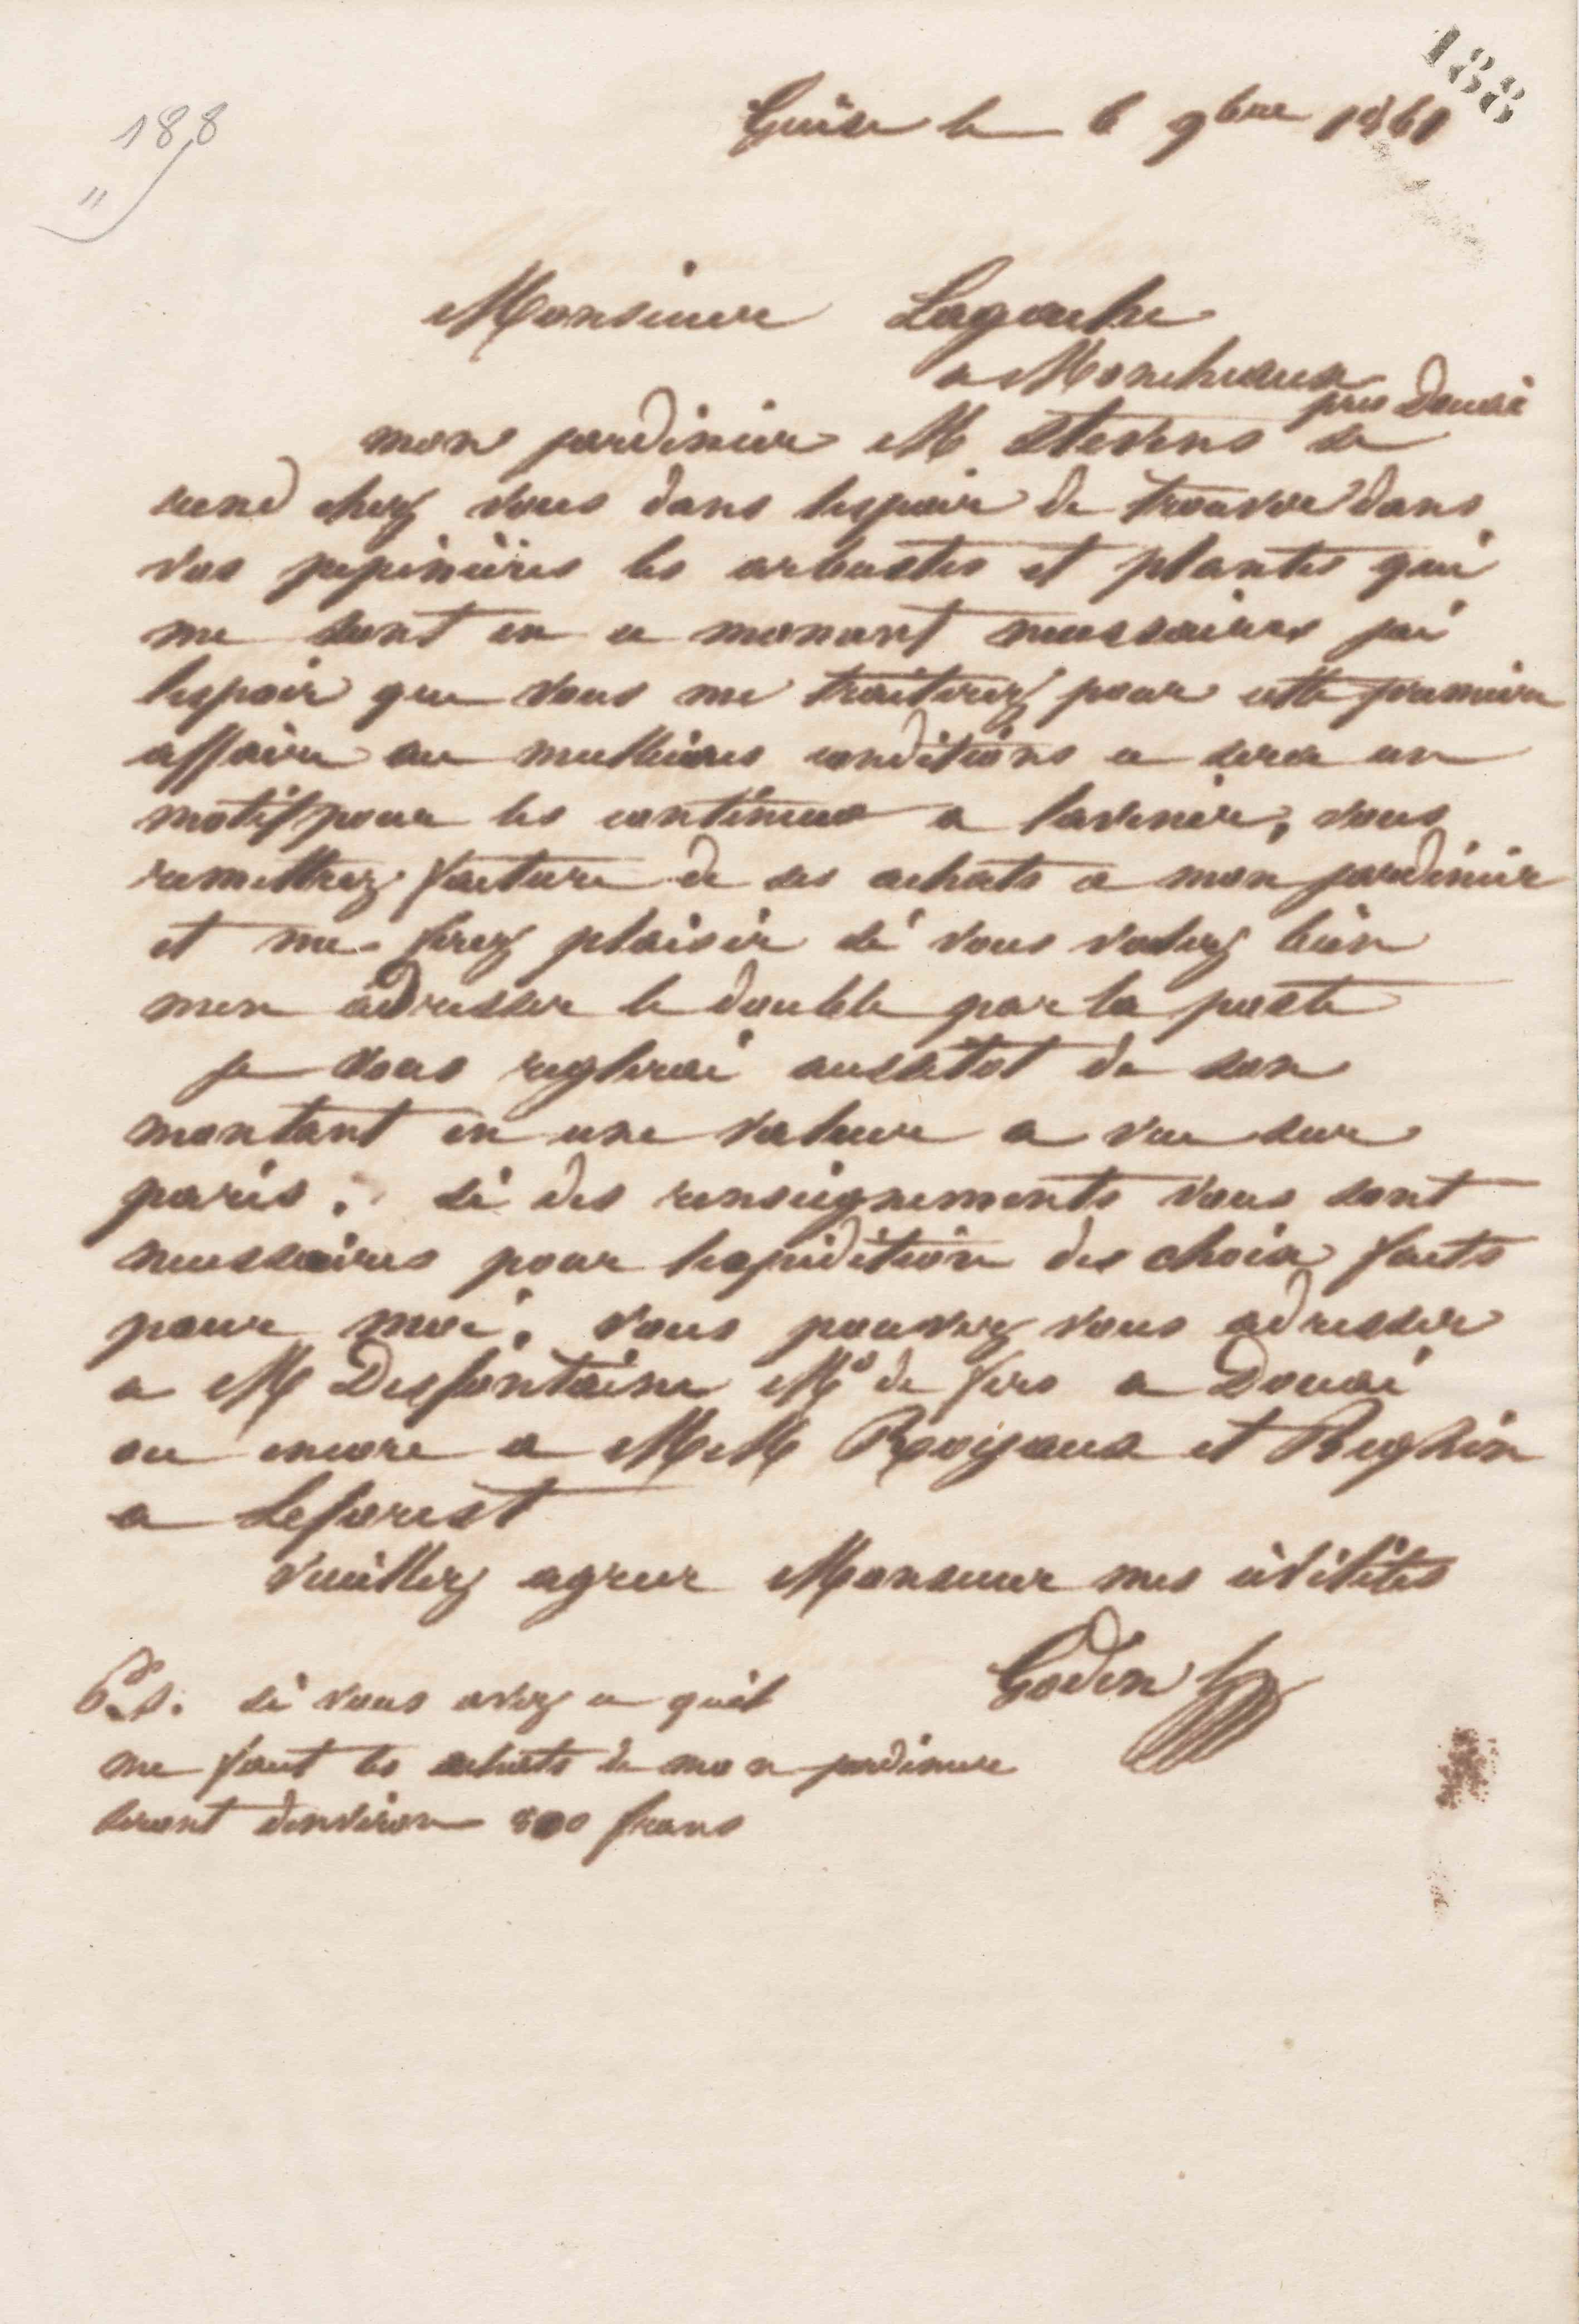 188
188
"
Guise le 6 9bre 1861
Monsieur Lagache
a Moncheaux
pres Douai
mon jardinier M Stevens se
rend chez vous dans lespoir de trouver dans
vos pepinières les arbustes et plantes qui
me sont en ce moment necessaires jai
lespoir que vous me traiterez pour cette premiere
affaire au meilleures conditions ce sera un
motif pour les continuer a lavenir, vous
remettrez facture de ses achats a mon jardinier
et me ferez plaisir si vous voulez bien
men adresser le double par la poste
je vous reglerai aussitot de son
montant en une valeur a vue sur
paris. si des renseignements vous sont
necessaires pour lexpedition des choix faits
pour moi. vous pouvez vous adresser
a M Desfontaine Md de fers a Douai
ou encore a MM Royaux et Beghin
a Leforest
Veuillez agreer Monsieur mes civilités
Godin
P.S. si vous avez ce quil
me faut les achats de mon jardinier
seront denviron 800 francs